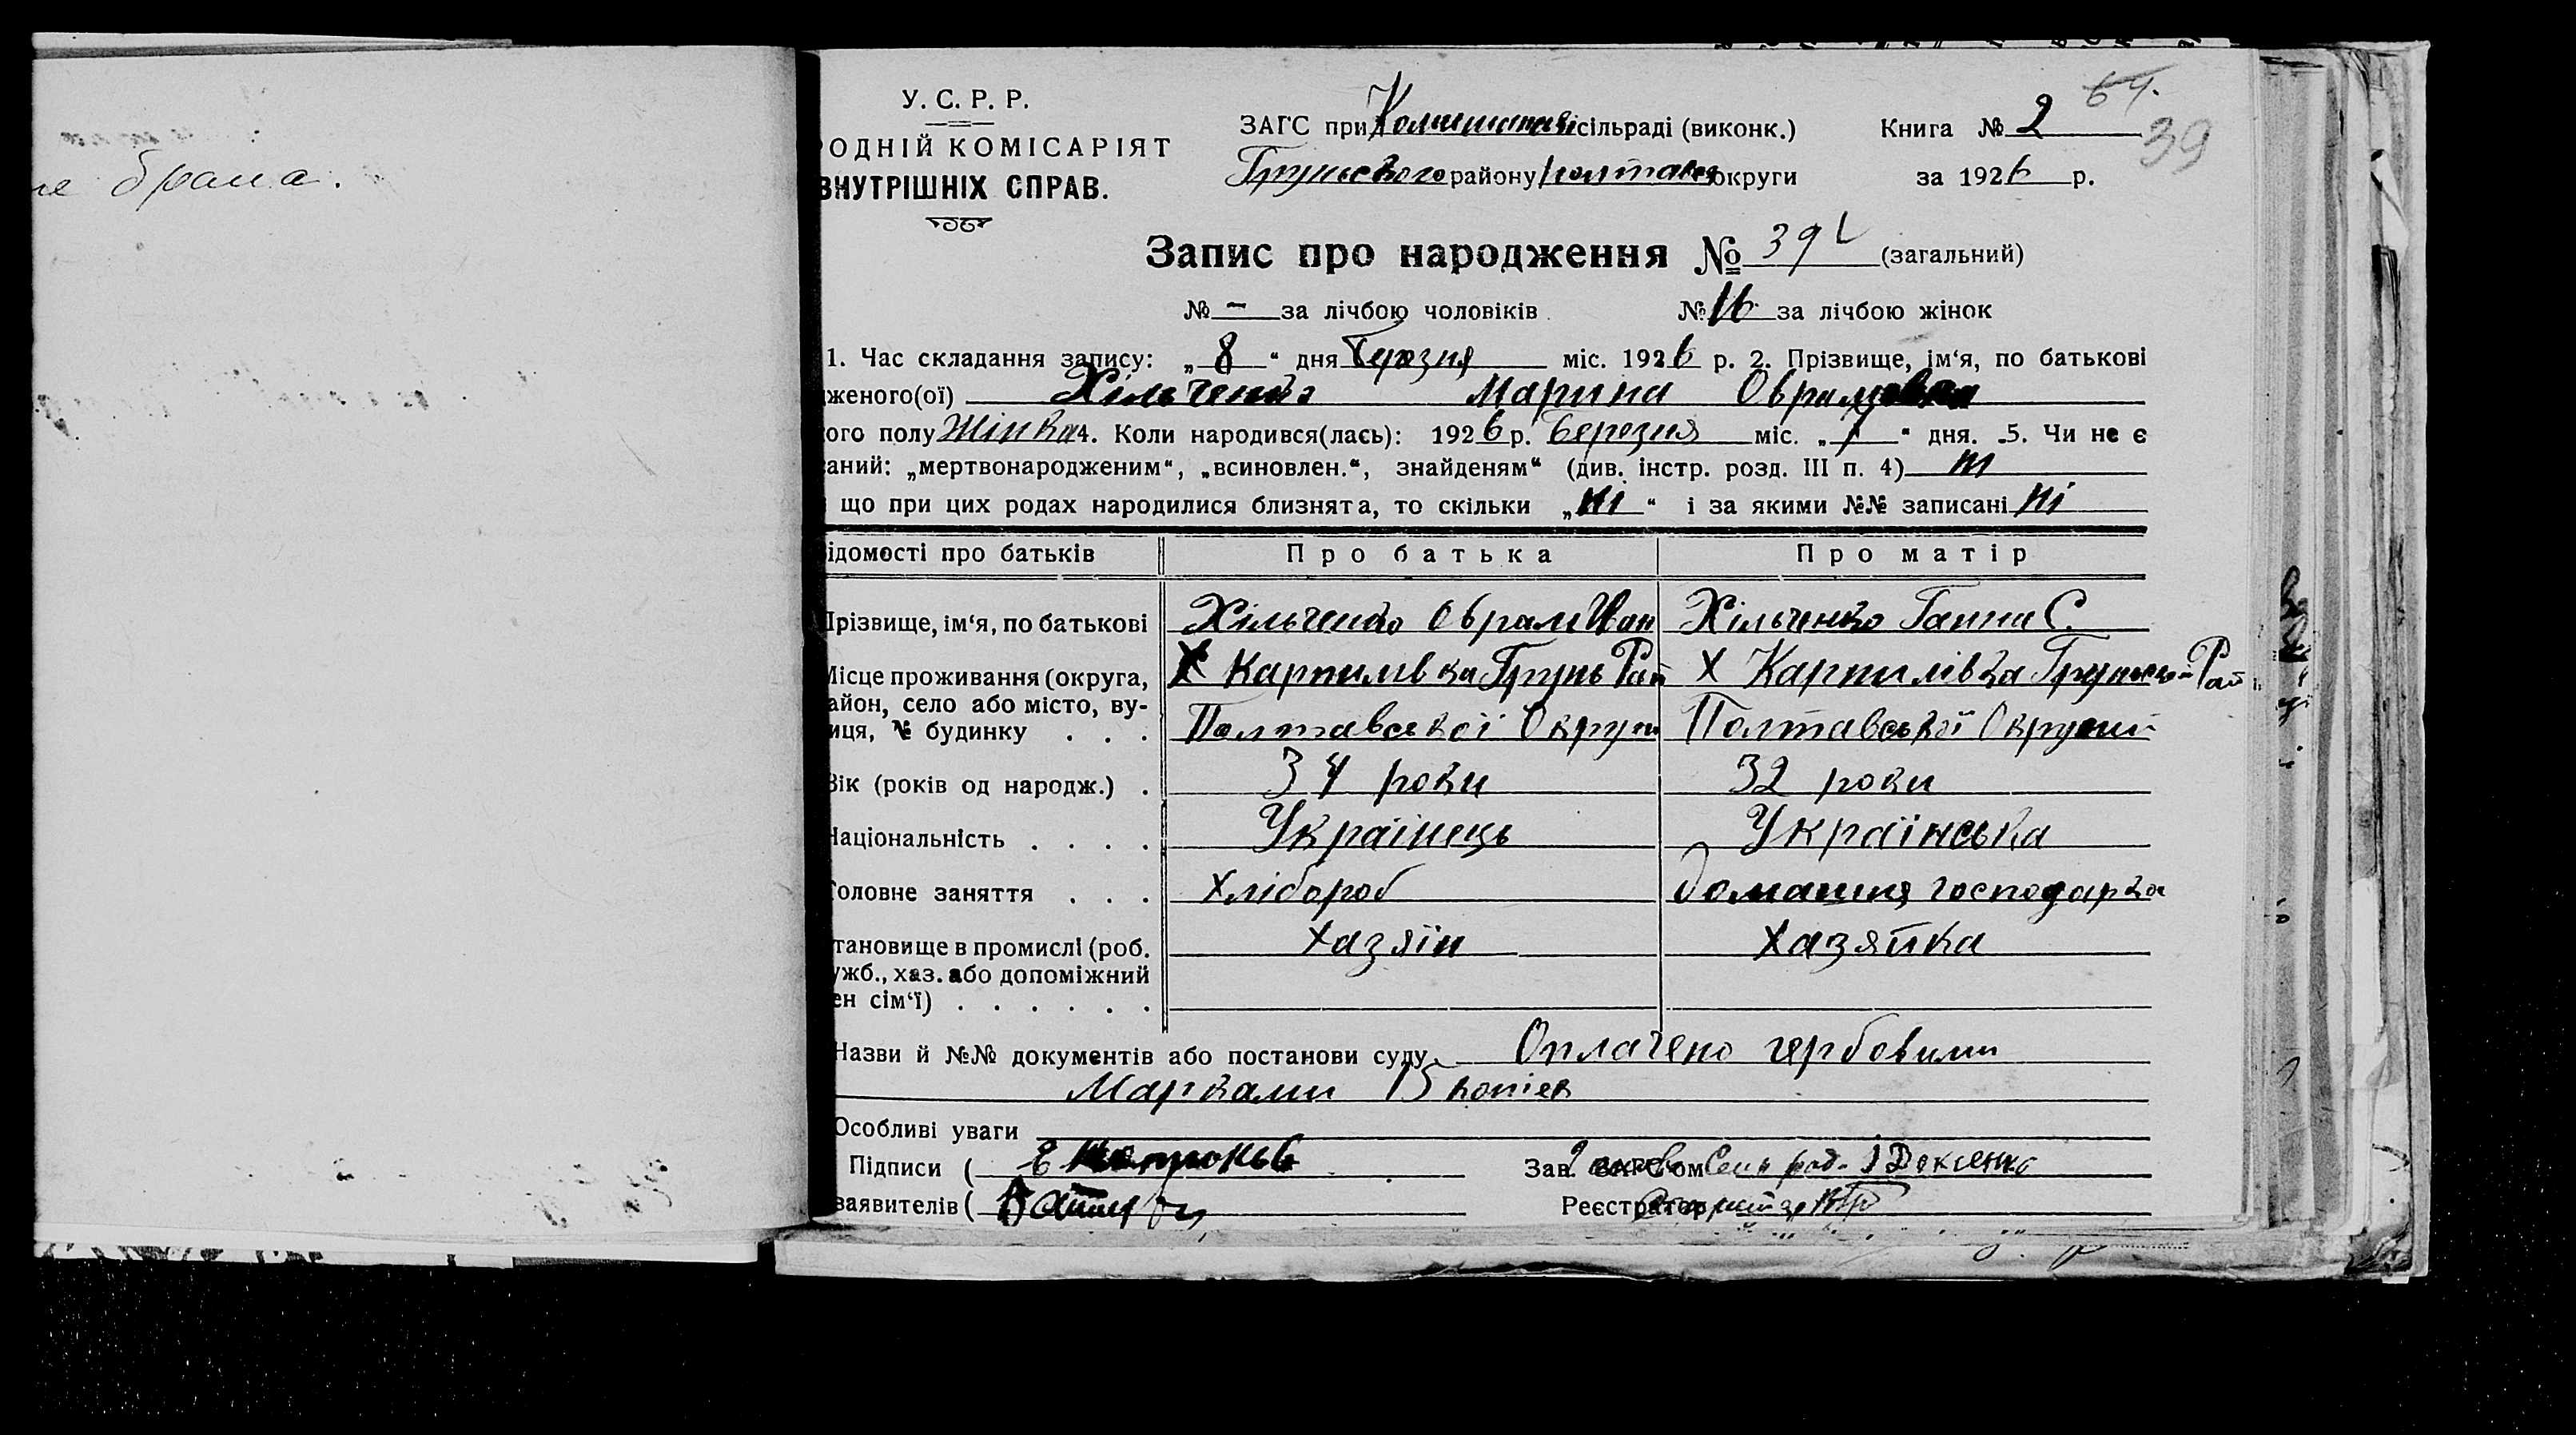 не брата.
64.
39
У. С. Р. Р.
РОДНІЙ КОМІСАРІЯТ
ВНУТРІШНІХ СПРАВ.
ЗАГС при сільраді (виконк.) Книга № 2
Груньского району Полтавс округи за 1926 р.
Запис про народження № 39 (загальний)
№ – за лічбою чоловіків № 16 за лічбою жінок
1. Час складання запису: „ 8 “ дня Березня міс. 1926 р. 2. Прізвище, ім‘я, по батькові
дженого(ої) Хільченко Марина Оврамовна
ого полу Жінка 4. Коли народився(лась): 1926 р. Березня міс. „ 7 “ дня. 5. Чи не є
заний: „мертвонародженим“, „всиновлен.“, знайденям“ (див. інстр. розд. III п. 4) ні
що при цих родах народилися близнята, то скільки „ ні “ і за якими №№ записані ні
ідомості про батьків Про батька Про матір
Прізвище, ім‘я, по батькові Хільченко Оврам Иван Хільченко Ганна С.
Місце проживання (округа, айон, село або місто, ву- иця, № будинку . . . Х Карпилівка Грунь Рай Х Карпилівка Груньск Рай
Полтавської Округи Полтавської Округи
Вік (років од народж.) . 34 роки 32 роки
Національність . . . . Українець Українська
Головне заняття . . . Хлібороб домашня господарка
тановище в промислі (роб. ужб., хаз. або допоміжний ен сім‘ї) . . . . . . Хазяїн Хазяйка
Назви й №№ документів або постанови суду Оплачено гербовими
Марками 15 копієк
Особливі уваги
Підписи ( Зав. ЗАГС‘ом
заявителів ( Реєстратор